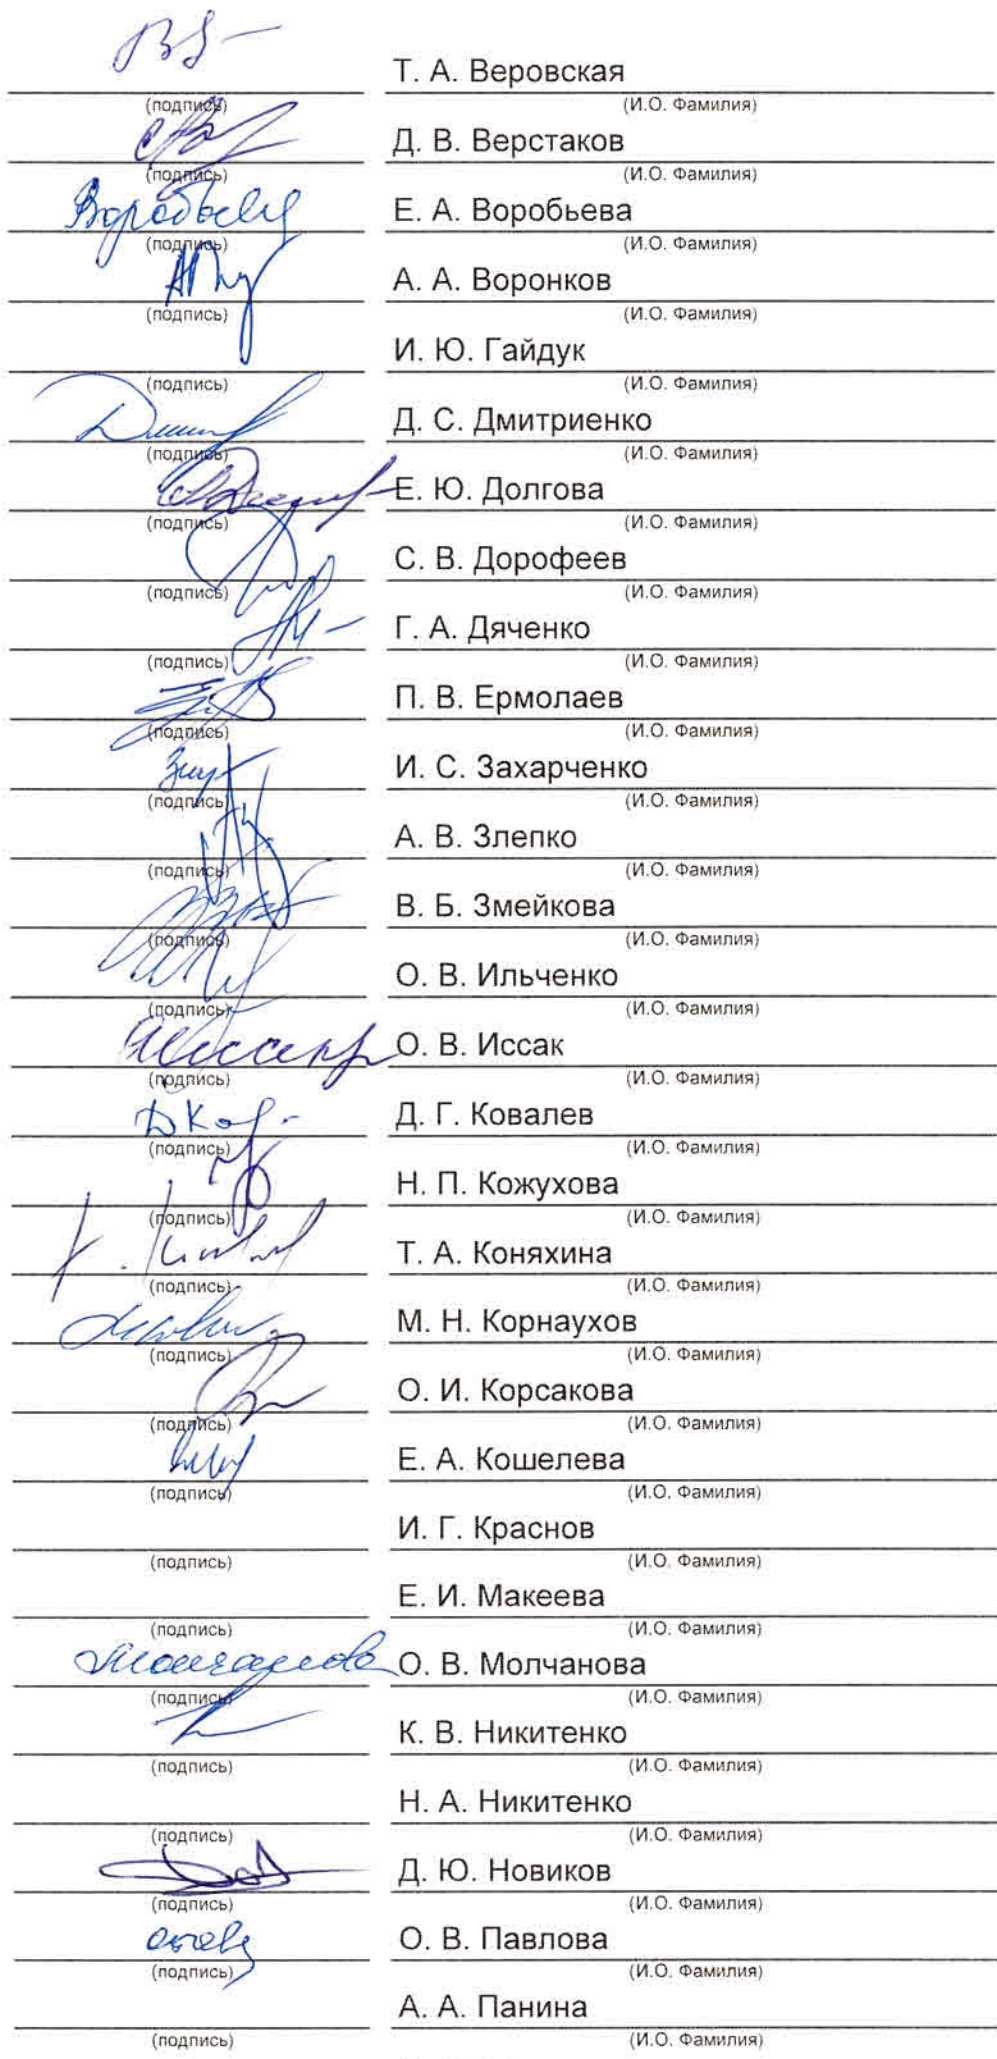 Т. А. Веровская
(подпись) (И.О. Фамилия)
Д. В. Верстаков
(подпись) (И.О. Фамилия)
Воробьева Е. А. Воробьева
(подпись) (И.О. Фамилия)
А. А. Воронков
(подпись) (И.О. Фамилия)
И. Ю. Гайдук
(подпись) (И.О. Фамилия)
Д. С. Дмитриенко
(подпись) (И.О. Фамилия)
Е. Ю. Долгова
(подпись) (И.О. Фамилия)
С. В. Дорофеев
(подпись) (И.О. Фамилия)
Г. А. Дяченко
(подпись) (И.О. Фамилия)
П. В. Ермолаев
(подпись) (И.О. Фамилия)
И. С. Захарченко
(подпись) (И.О. Фамилия)
А. В. Злепко
(подпись) (И.О. Фамилия)
В. Б. Змейкова
(подпись) (И.О. Фамилия)
О. В. Ильченко
(подпись) (И.О. Фамилия)
О. В. Иссак
(подпись) (И.О. Фамилия)
Д. Г. Ковалев
(подпись) (И.О. Фамилия)
Н. П. Кожухова
(подпись) (И.О. Фамилия)
Т. А. Коняхина
(подпись) (И.О. Фамилия)
М. Н. Корнаухов
(подпись) (И.О. Фамилия)
О. И. Корсакова
(подпись) (И.О. Фамилия)
Е. А. Кошелева
(подпись) (И.О. Фамилия)
И. Г. Краснов
(подпись) (И.О. Фамилия)
Е. И. Макеева
(подпись) (И.О. Фамилия)
Молчанова О. В. Молчанова
(подпись) (И.О. Фамилия)
К. В. Никитенко
(подпись) (И.О. Фамилия)
Н. А. Никитенко
(подпись) (И.О. Фамилия)
Д. Ю. Новиков
(подпись) (И.О. Фамилия)
О. В. Павлова
(подпись) (И.О. Фамилия)
А. А. Панина
(подпись) (И.О. Фамилия)